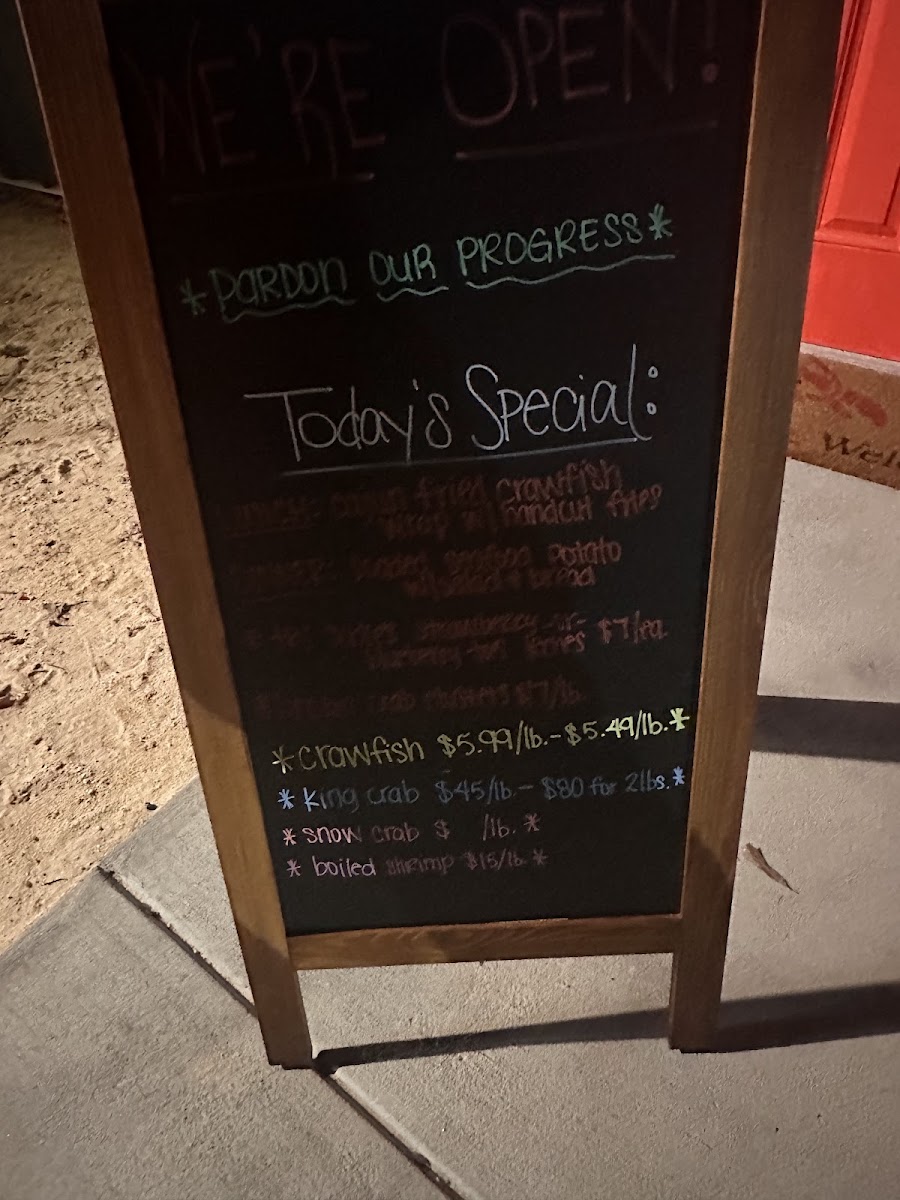 WE'RE OPEN!
*PARDON OUR PROGRESS*
Today's Special:
fried crawfish
wrap w/ handcut fries
loaded seafood potato
w/ salad & bread
strawberry -or-
$7/ea.
crab clusters $7/lb.
*crawfish $5.99/lb.-$5.49/lb.*
*king crab $45/lb.- $80 for 2lbs.*
*snow crab $ /lb.*
*boiled shrimp $15/lb.*
Wel